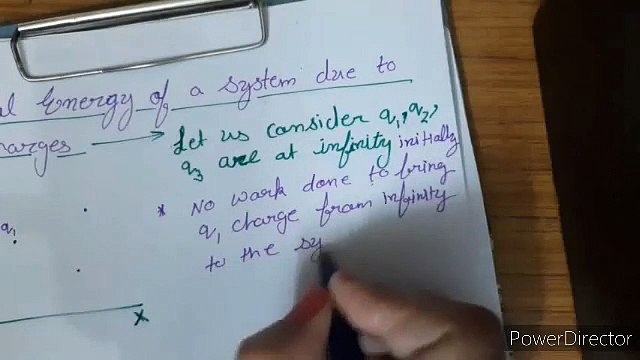 al Energy of a system due to
harges → Let us consider q₁, q₂,
q₃ are at infinity initially
* No work done to bring
q₁ charge from infinity
to the sy
q₁
X
PowerDirector